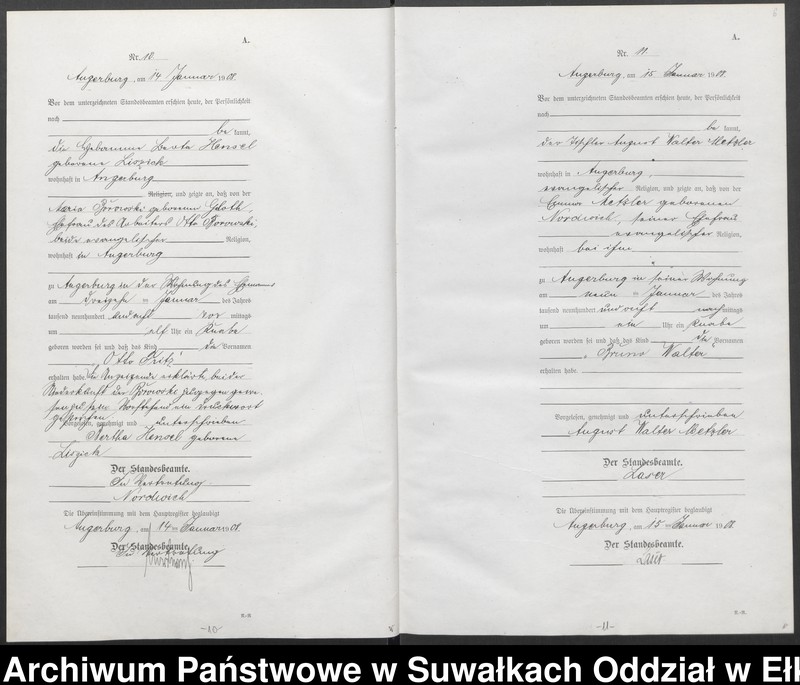 A.
Nr. 10
Angerburg, am 14 Januar 1908.
Vor dem unterzeichneten Standesbeamten erschien heute, der Persönlichkeit
nach
be kannt,
die Hebamme Berta Hensel
geborene Liszich
wohnhaft in Angerburg
Religion, und zeigte an, daß von der
Maria Borowski geborenen
Ehefrau des Arbeiters Otto Borowski,
beide evangelischer Religion,
wohnhaft in Angerburg
zu Angerburg in der Wohnung des Ehemannes
am dreizehn ten Januar des Jahres
tausend neunhundert und acht vor mittags
um elf Uhr ein Knabe
geboren worden sei und daß das Kind die Vornamen
„Otto Fritz"
erhalten habe. Die Anzeigende erklärt, bei der
Niederkunft der Borowski zugegen gewe-
sen zu sein. Vorstehend ein Druckwort
gestrichen.
Vorgelesen, genehmigt und unterschrieben
Bertha Hensel geborene
Liszich
Der Standesbeamte.
In Vertretung
Nordwich
Die Übereinstimmung mit dem Hauptregister beglaubigt
Angerburg, am 14 ten Januar 1908.
Der Standesbeamte.
In Vertretung
Nordwich
E.-R.
-10-
A.
Nr. 11
Angerburg, am 15. Januar 1908.
Vor dem unterzeichneten Standesbeamten erschien heute, der Persönlichkeit
nach
be kannt,
der Tischler August Walter Metzler
wohnhaft in Angerburg,
evangelischer Religion, und zeigte an, daß von der
Metzler geborenen
Nordwich, seiner Ehefrau
evangelischer Religion,
wohnhaft bei ihm,
zu Angerburg in seiner Wohnung
am neun ten Januar des Jahres
tausend neunhundert und acht nachmittags
um ein Uhr ein Knabe
geboren worden sei und daß das Kind die Vornamen
„Bruno Walter"
erhalten habe.
Vorgelesen, genehmigt und unterschrieben
August Walter Metzler
Der Standesbeamte.
Laser
Die Übereinstimmung mit dem Hauptregister beglaubigt
Angerburg, am 15 ten Januar 1908.
Der Standesbeamte.
-11-
Archiwum Państwowe w Suwałkach Oddział w Ełk